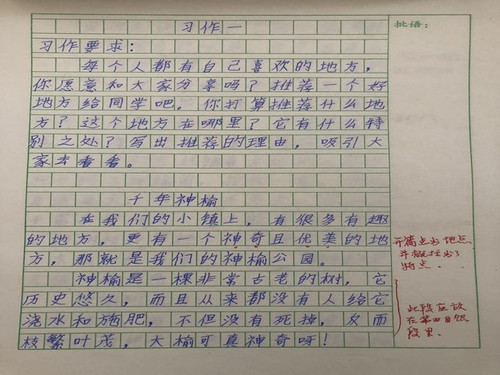 习作一
批语:
习作要求:
每个人都有自己喜欢的地方,
你愿意和大家分享吗?推荐一个好
地方给同学吧。你打算推荐什么地
方?这个地方在哪里?它有什么特
别之处?写出推荐的理由,吸引大
家去看看。
千年神榆
在我们的小镇上,有很多有趣
的地方,更有一个神奇且优美的地
方,那就是我们的神榆公园。
开篇点出地点
并概括出了
特点.
神榆是一棵非常古老的树,它
历史悠久,而且从来都没有人给它
浇水和施肥,不但没有死掉,反而
枝繁叶茂,大榆可真神奇呀!
此段应放
在第四自然
段里.